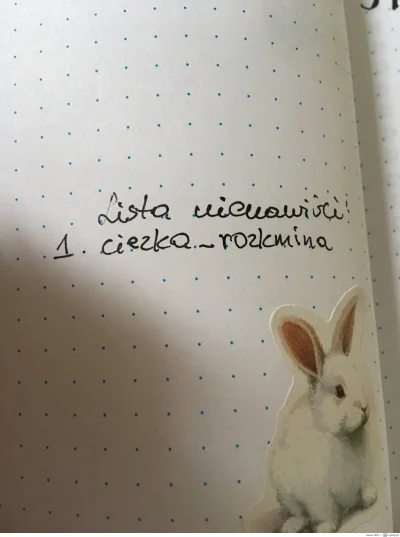 Lista nienawiści!
1. ciezka_rozkmina